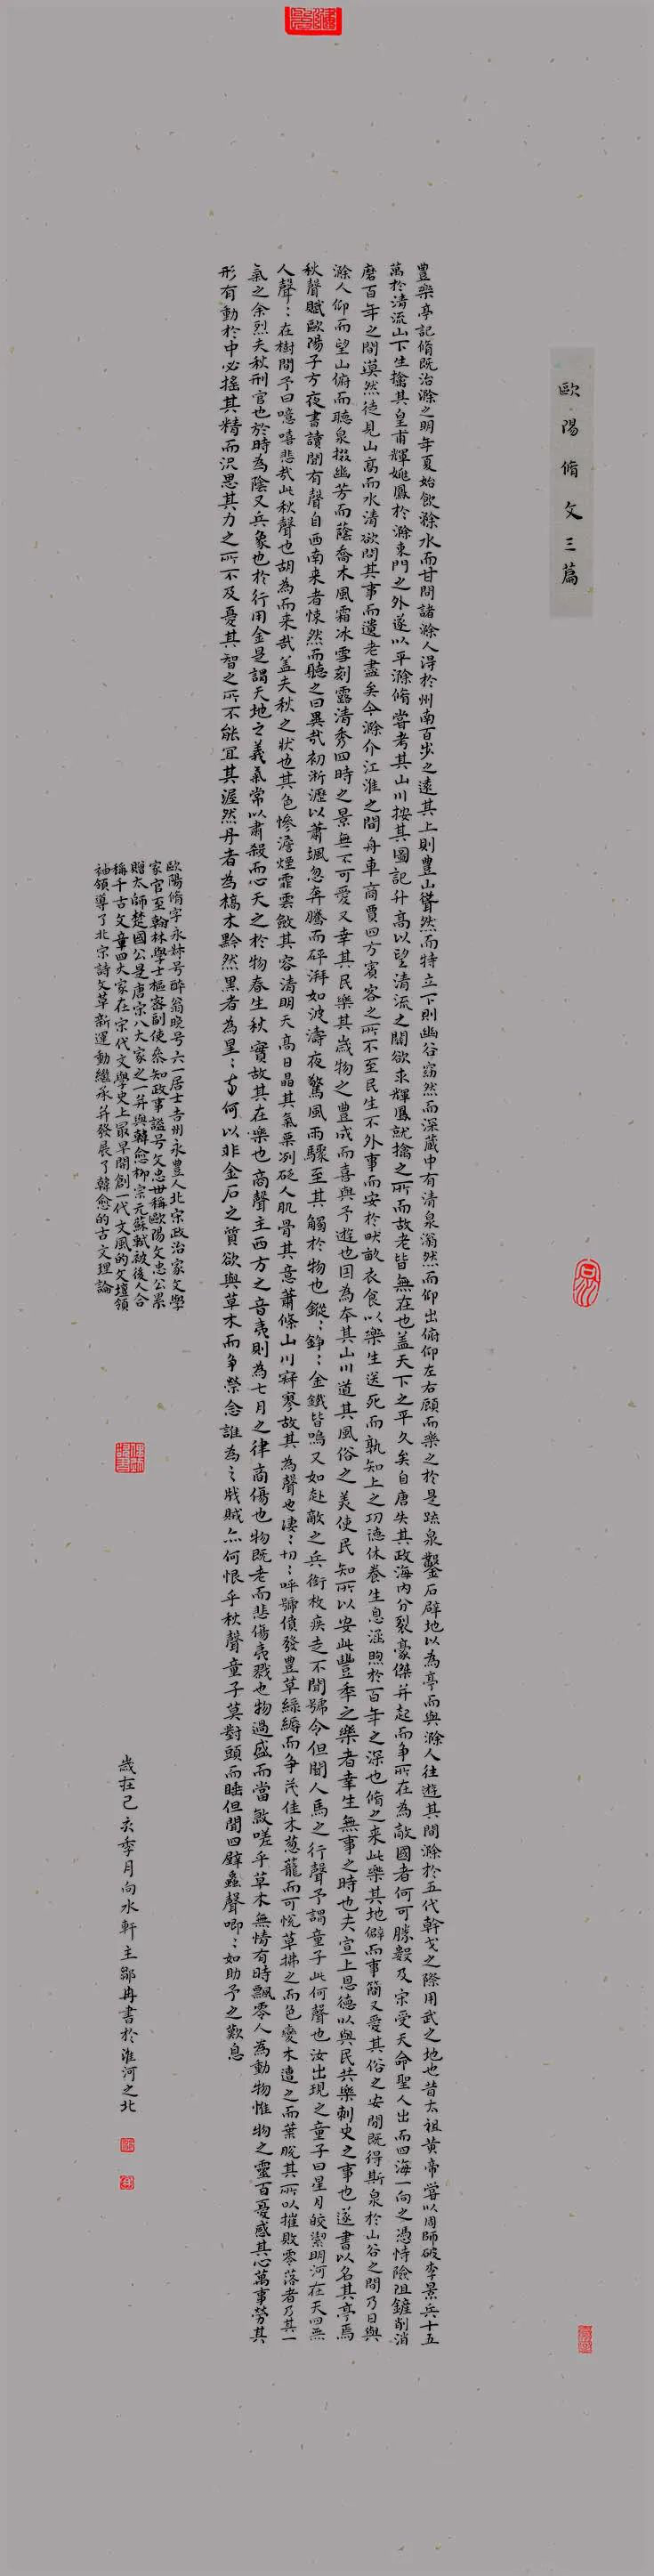 歐陽脩文三篇
豐樂亭記脩既治滁之明年夏始飲滁水而甘問諸滁人得於州南百步之遠其上則豐山聳然而特立下則幽谷窈然而深藏中有清泉滃然而仰出俯仰左右顧而樂之於是疏泉鑿石辟地以為亭而與滁人往遊其間滁於五代幹戈之際用武之地也昔太祖黄帝嘗以周師破李景兵十五
萬於清流山下生擒其皇甫輝姚鳳於滁東門之外遂以平滁脩嘗考其山川按其圖記升高以望清流之關欲求輝鳳就擒之所而故老皆無在也盖天下之平久矣自唐失其政海內分裂豪傑并起而争所在為敵國者何可勝數及宋受天命聖人出而四海一向之憑恃險阻鏟削消
磨百年之間漠然徒見山高而水清欲問其事而遺老盡矣今滁介江淮之間舟車商賈四方賓客之所不至民生不外事而安於畎畝衣食以樂生送死而孰知上之功德休養生息涵煦於百年之深也脩之来此樂其地僻而事簡又愛其俗之安閒既得斯泉於山谷之間乃日與
滁人仰而望山俯而聽泉掇幽芳而蔭喬木風霜冰雪刻露清秀四時之景無不可愛又幸其民樂其歲物之豊成而喜與予遊也因為本其山川道其風俗之美使民知所以安此豐季之樂者幸生無事之時也夫宣上恩德以與民共樂刺史之事也遂書以名其亭焉
秋聲賦歐陽子方夜書讀聞有聲自西南来者悚然而聽之曰異哉初淅瀝以蕭颯忽奔騰而砰湃如波濤夜驚風雨驟至其觸於物也鏦:錚:金鐵皆鳴又如赴敵之兵銜枚疾走不聞號令但聞人馬之行聲予謂童子此何聲也汝出現之童子曰星月皎潔明河在天四無
人聲:在樹間予曰噫嘻悲哉此秋聲也胡為而来哉盖夫秋之狀也其色慘澹煙霏雲斂其容清明天高日晶其氣栗冽砭人肌骨其意蕭條山川寂寥故其為聲也凄:切:呼號僨發豊草綠縟而争茂佳木葱蘢而可悅草拂之而色變木遭之而葉脫其所以摧敗零落者乃其一
氣之余烈夫秋刑官也於時為陰又兵象也於行用金是謂天地之義氣常以肅殺而心天之於物春生秋實故其在樂也商聲主西方之音夷則為七月之律商傷也物既老而悲傷夷戮也物過盛而當殺嗟乎草木無情有時飄零人為動物惟物之靈百憂感其心萬事勞其
形有動於中必搖其精而況思其力之所不及憂其智之所不能宜其渥然丹者為槁木黟然黑者為星:奈何以非金石之質欲與草木而争榮念誰為之戕賊亦何恨乎秋聲童子莫對頭而睡但聞四壁蟲聲唧:如助予之歎息
歐陽脩字永叔号醉翁晚号六一居士吉州永豊人北宋政治家文學
家官至翰林學士樞密副使參知政事謚号文忠世稱歐陽文忠公累
贈太師楚國公是唐宋八大家之一并與韓愈柳宗元蘇軾被後人合
稱千古文章四大家在宋代文學史上最早開創一代文風的文壇領
袖領導了北宋詩文革新運動繼承并發展了韓愈的古文理論
歲在己亥季月向水軒主鄒冉書於淮河之北